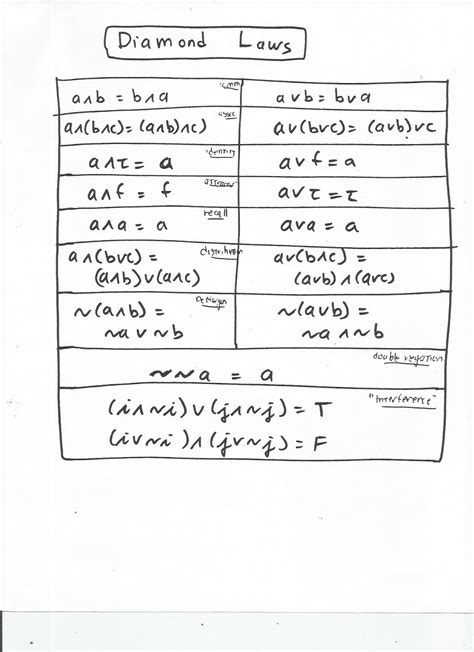 Diamond Laws
comm
a∧b = b∧a
a∨b = b∨a
assoc
a∧(b∧c)= (a∧b)∧c)
a∨(b∨c)= (a∨b)∨c
identity
a∧τ = a
a∨f = a
attractor
a∧f = f
a∨τ = τ
recall
a∧a = a
a∨a = a
distribution
a∧(b∨c) =
(a∧b)∨(a∧c)
a∨(b∧c) =
(a∨b)∧(a∨c)
DeMorgan
~(a∧b) =
~a∨~b
~(a∨b) =
~a∧~b
double negation
~~a = a
"Interference"
(i∧~i)∨(j∧~j) = T
(i∨~i)∧(j∨~j) = F